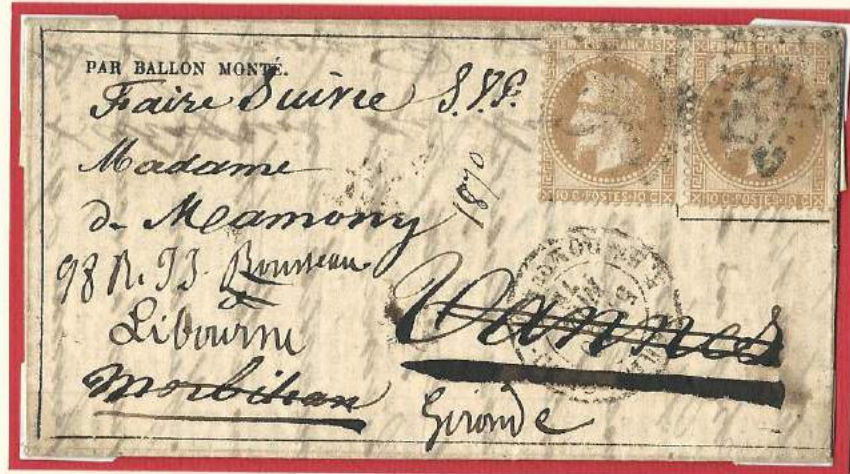 PAR BALLON MONTÉ.
Faire Suivre S.V.P.
Madame
de
1870
98 R. JJ. Rousseau
à
Libourne
Vannes
Morbihan
Gironde
EMPIRE FRANÇAIS
10 C · POSTES · 10 C
EMPIRE FRANÇAIS
10 C · POSTES · 10 C